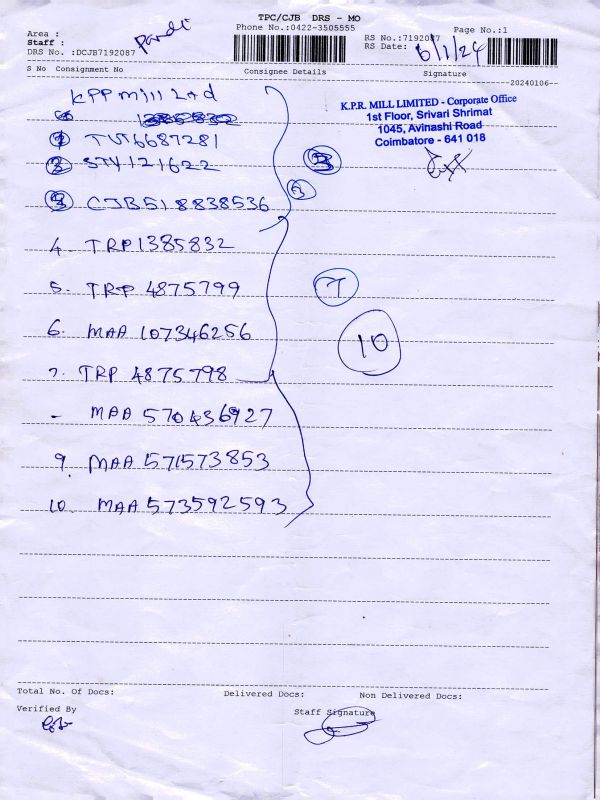 TPC/CJB DRS - MO
Phone No.:0422-3505555
Page No.:1
Area :
Staff :
DRS No. :DCJB7192087
RS No.:7192087
RS Date: 6/1/24
S No Consignment No Consignee Details Signature
--20240106--
KPP mill Ltd
K.P.R. MILL LIMITED - Corporate Office
1st Floor, Srivari Shrimat
1045, Avinashi Road
Coimbatore - 641 018
1 TUT6687281
2 STV121622
3
3 CJB518838536
4. TRP1385832
5. TRP 4875799
7
6. MAA 107346256
10
7. TRP 4875798
- MAA 570436927
9. MAA 571573853
10. MAA 573592593
Total No. Of Docs: Delivered Docs: Non Delivered Docs:
Verified By
Staff Signature